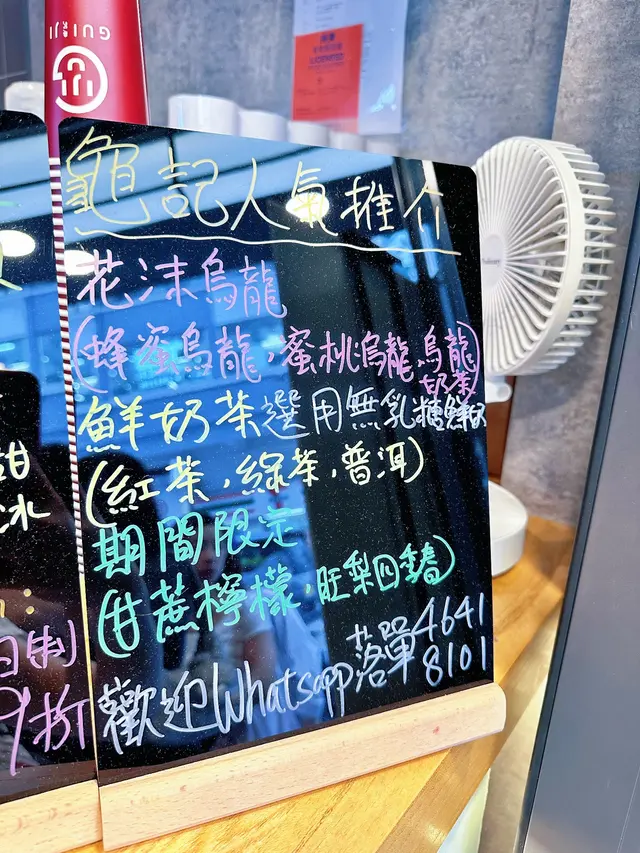 GUIJI
龜記人氣推介
花沫烏龍
(蜂蜜烏龍,蜜桃烏龍,烏龍
奶茶)
鮮奶茶選用無乳糖鮮奶
(紅茶,綠茶,普洱)
期間限定
(甘蔗檸檬,旺梨四季春)
歡迎Whatsapp落單4641
8101
甜
冰
自制
9折